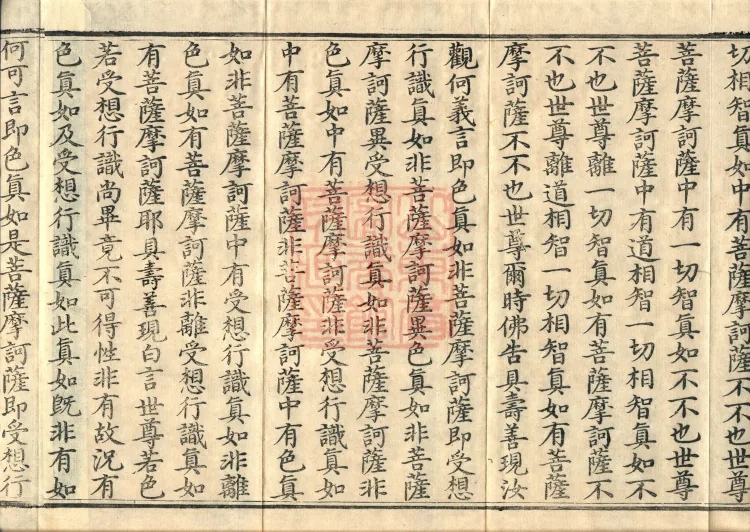 切相智真如中有菩薩摩訶薩不不也世尊
菩薩摩訶薩中有一切智真如不不也世尊
菩薩摩訶薩中有道相智一切相智真如不
不也世尊離一切智真如有菩薩摩訶薩不
不也世尊離道相智一切相智真如有菩薩
摩訶薩不不也世尊爾時佛告具壽善現汝
觀何義言即色真如非菩薩摩訶薩即受想
行識真如非菩薩摩訶薩異色真如非菩薩
摩訶薩異受想行識真如非菩薩摩訶薩非
色真如中有菩薩摩訶薩非受想行識真如
中有菩薩摩訶薩非菩薩摩訶薩中有色真
如非菩薩摩訶薩中有受想行識真如非離
色真如有菩薩摩訶薩非離受想行識真如
有菩薩摩訶薩耶具壽善現白言世尊若色
若受想行識尚畢竟不可得性非有故況有
色真如及受想行識真如此真如既非有如
何可言即色真如是菩薩摩訶薩即受想行